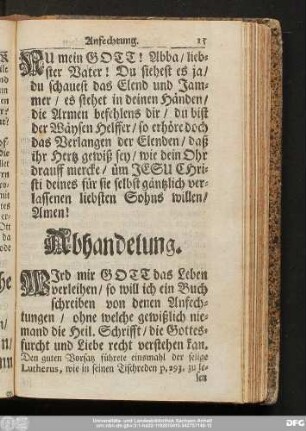 Anfechtung. 15
NU mein GOTT! Abba/ lieb-
ster Vater! Du siehest es ja/
du schauest das Elend und Jam-
mer/ es stehet in deinen Händen/
die Armen befehlens dir/ du bist
der Wäysen Helffer/ so erhöre doch
das Verlangen der Elenden/ daß
ihr Hertz gewiß sey/ wie dein Ohr
drauff mercke/ üm JESU CHri-
sti deines für sie selbst gäntzlich ver-
lassenen liebsten Sohns willen/
Amen!
Abhandelung.
WIrd mir GOTT das Leben
verleihen/ so will ich ein Buch
schreiben von denen Anfech-
tungen/ ohne welche gewißlich nie-
mand die Heil. Schrifft/ die Gottes-
furcht und Liebe recht verstehen kan.
Den guten Vorsatz führete einsmahl der selige
Lutherus, wie in seinen Tischreden p. 293. zu le-
sen
Universitäts- und Landesbibliothek Sachsen-Anhalt
DFG